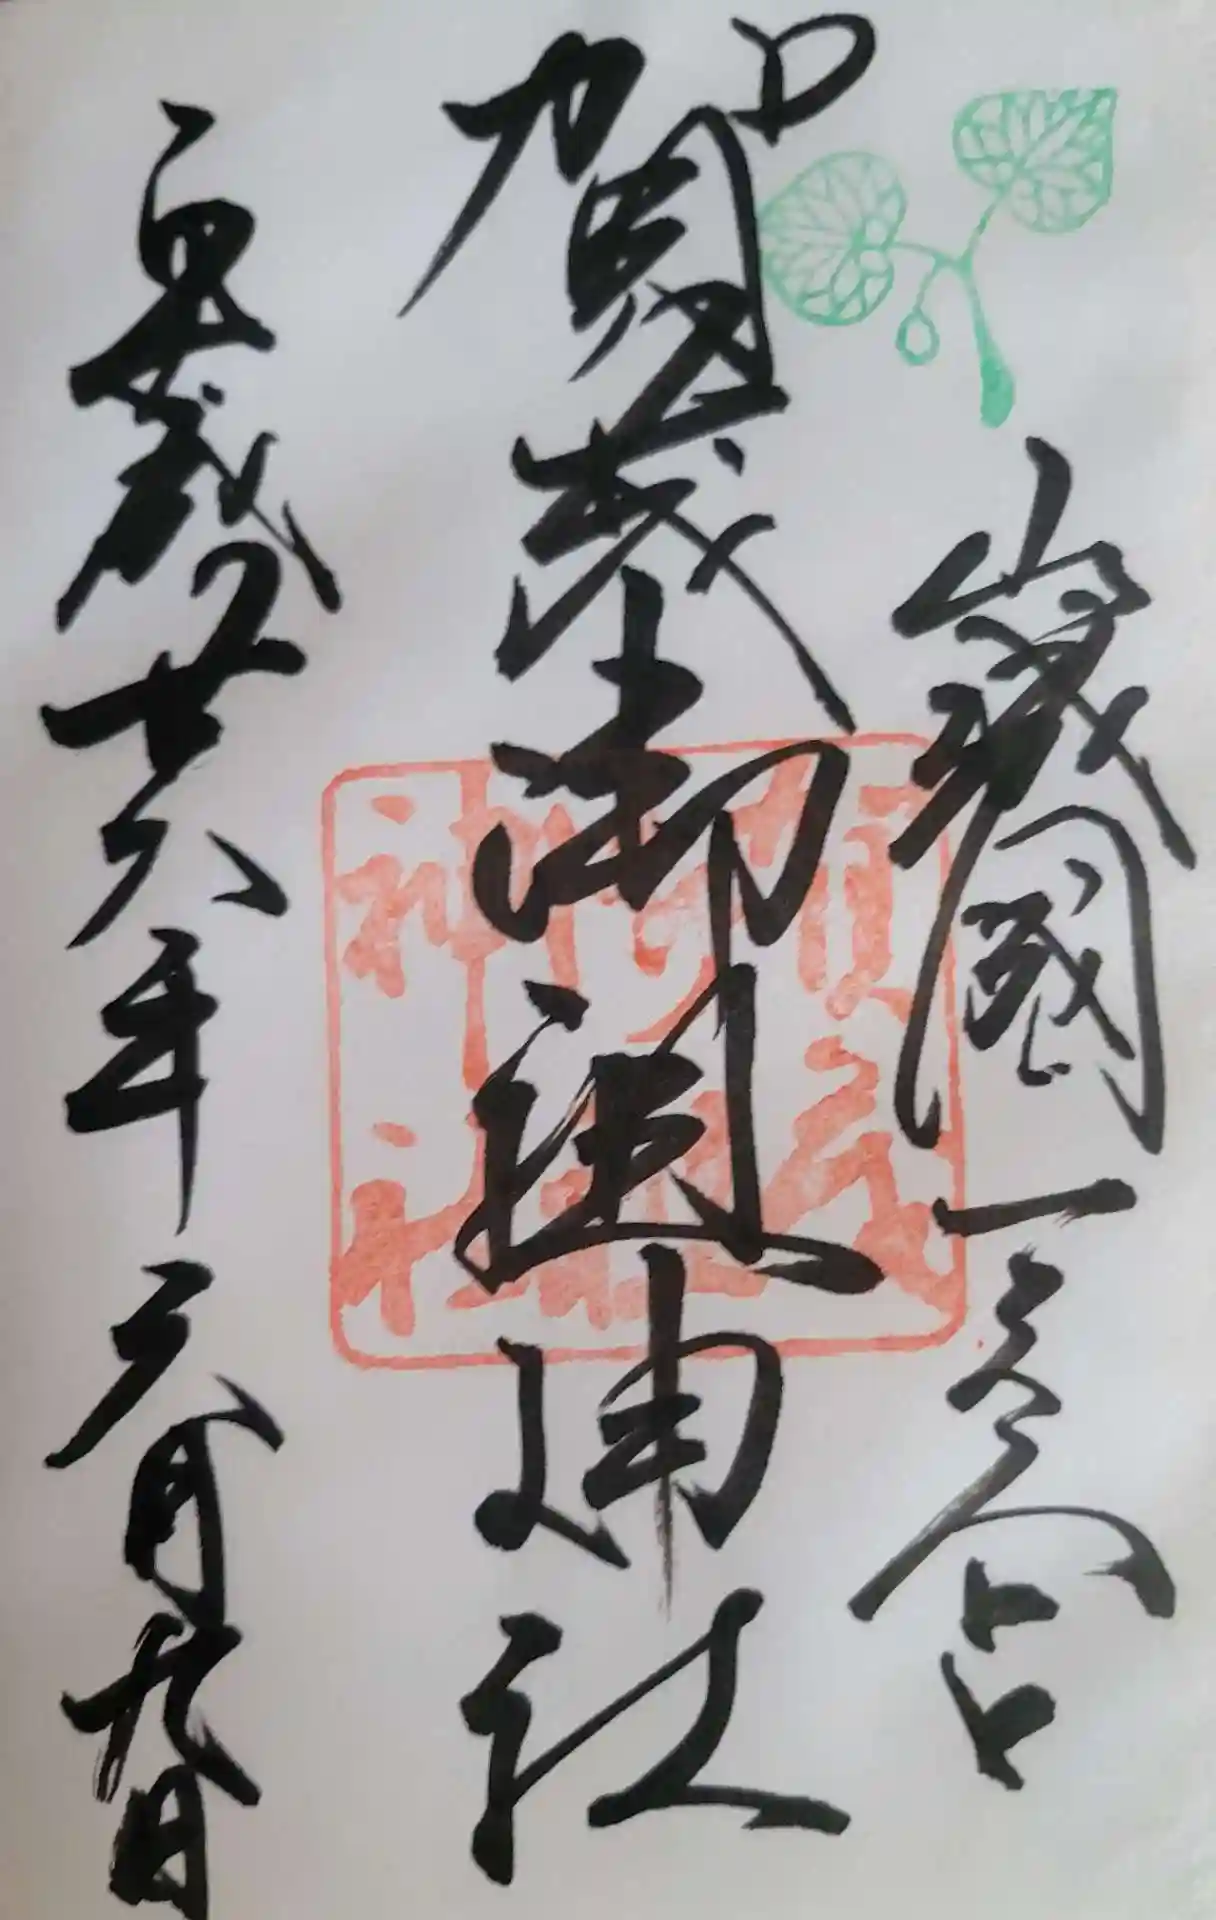 山城國一之宮
賀茂御祖神社
賀茂御祖神社
平成廿六年
九日